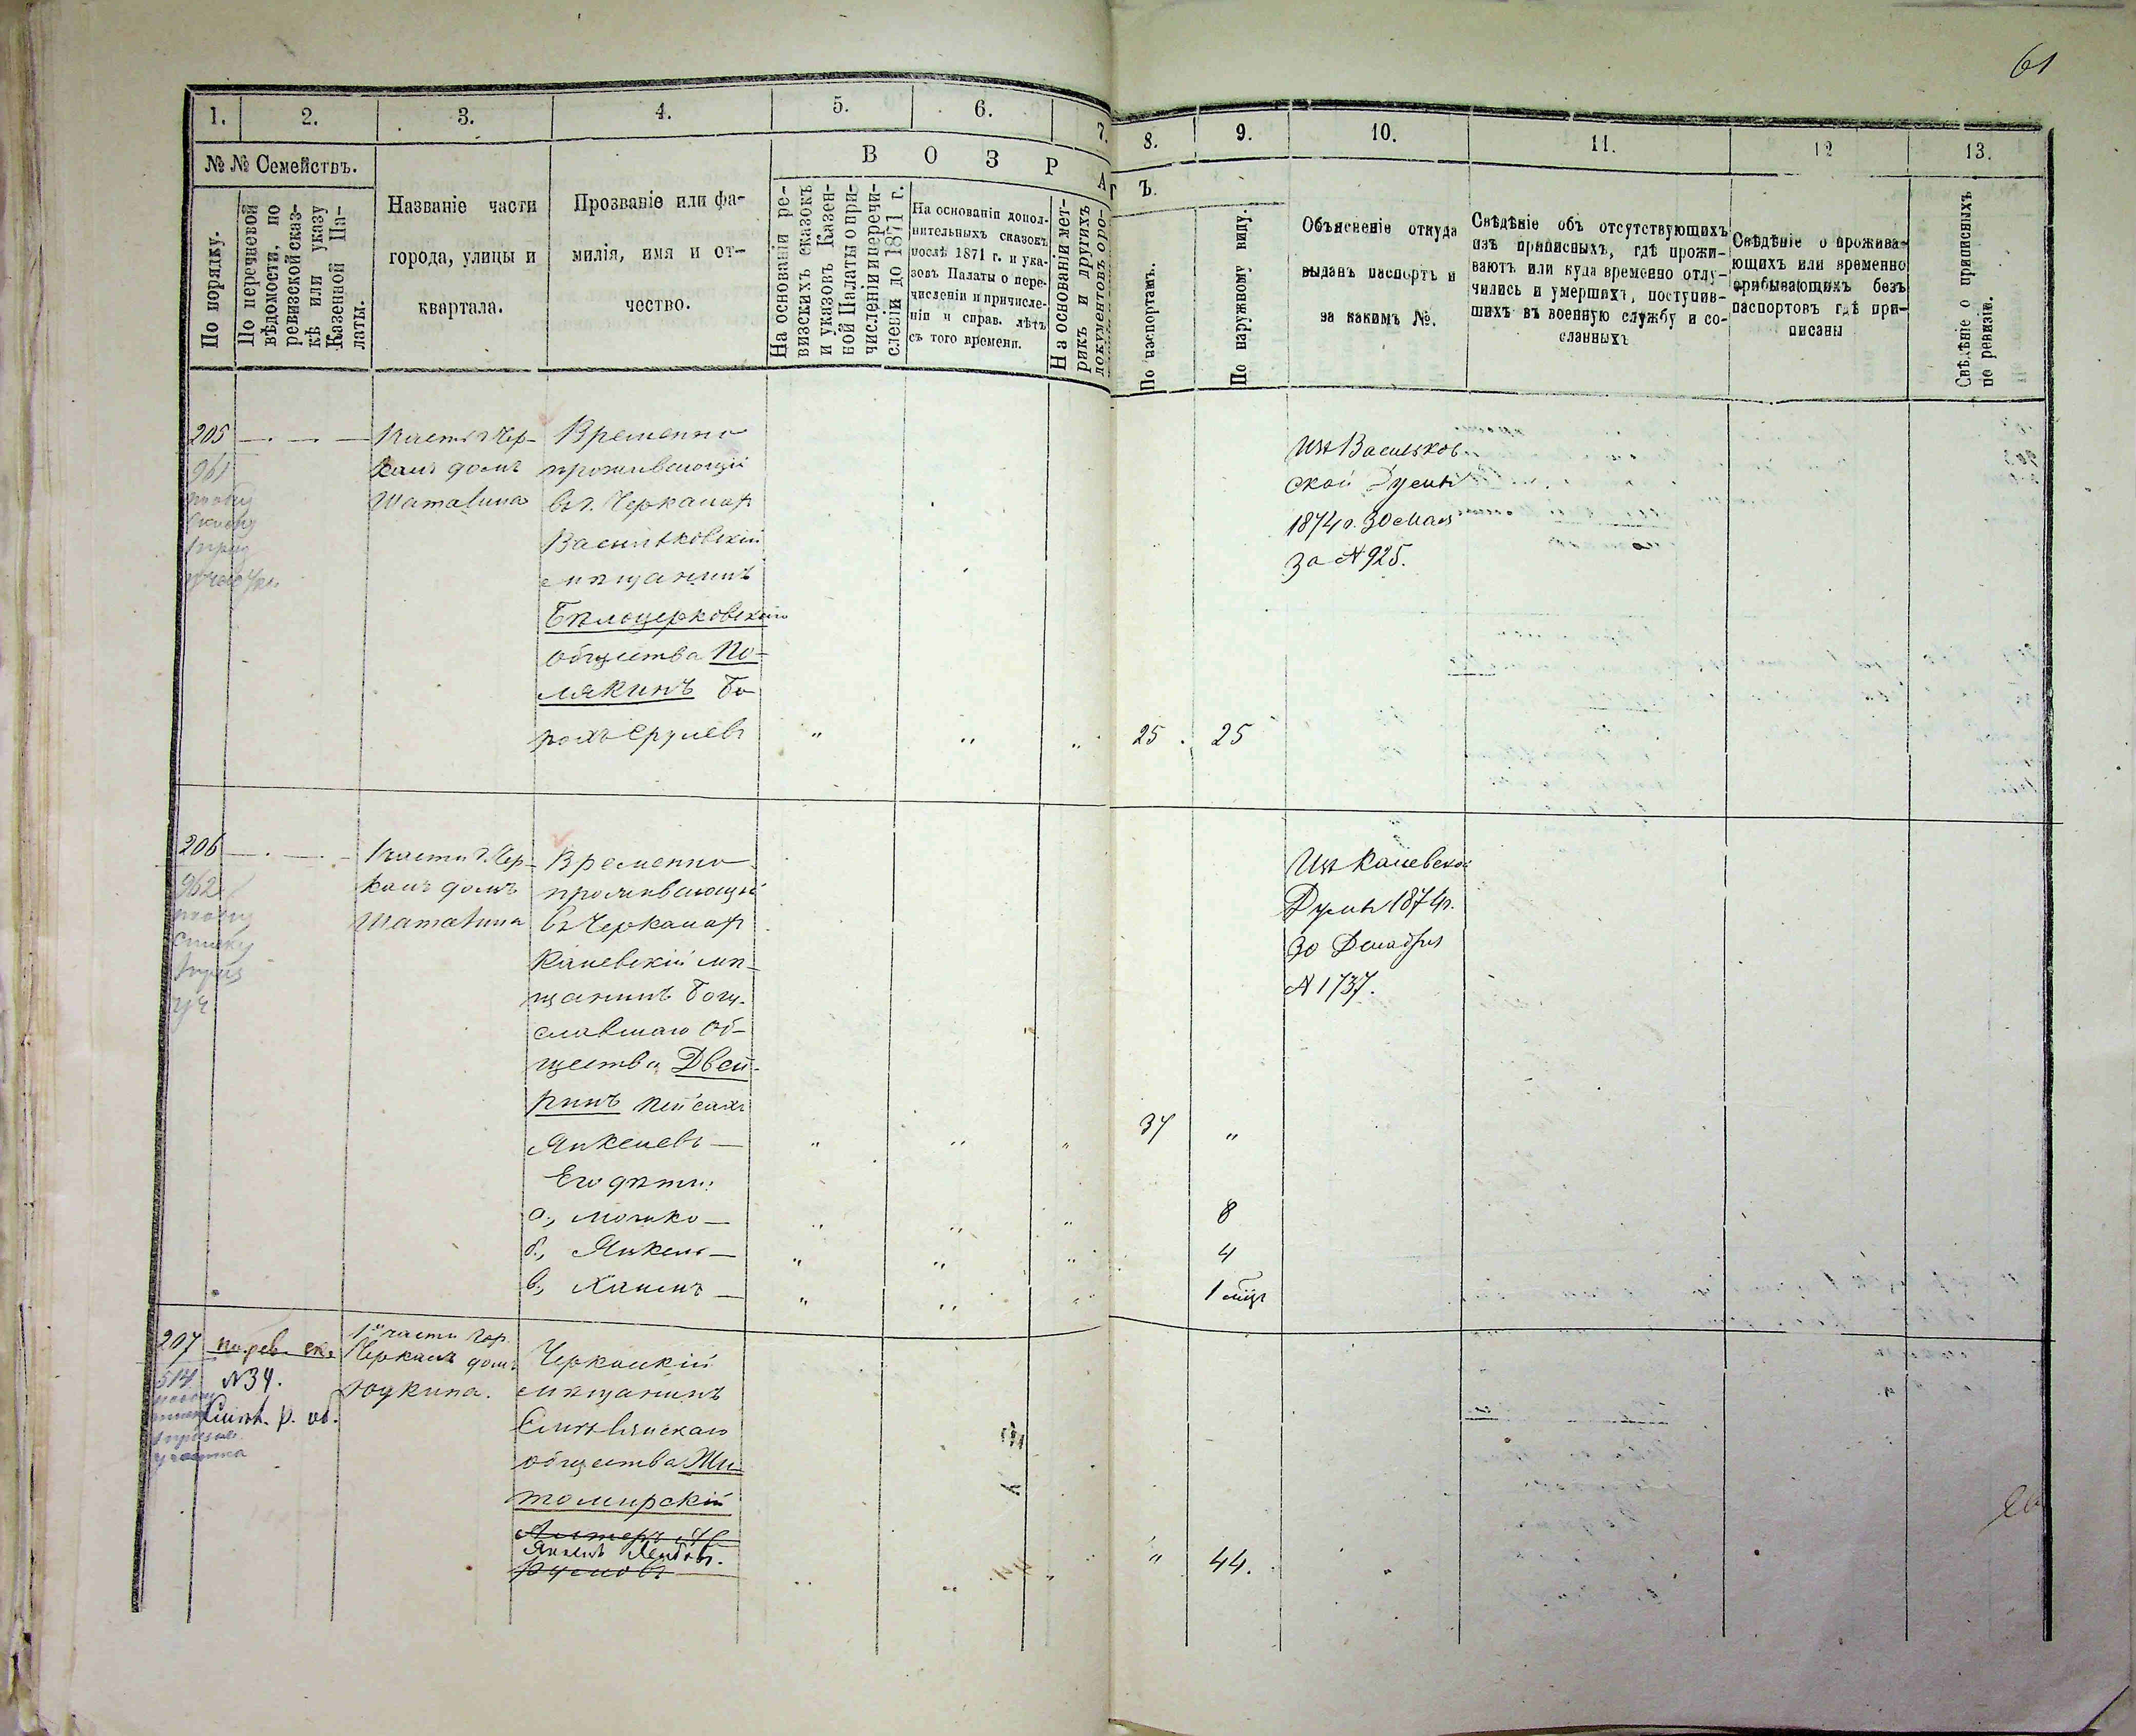 61
1. 2. 3. 4. 5. 6. 7. 8. 9. 10. 11. 12 13.
№ № Семействъ.
По порядку.
По перечневой
вѣдомости, по
ревизской сказ-
кѣ или указу
Казенной Па-
латы.
Названіе части
города, улицы и
квартала.
Прозваніе или фа-
милія, имя и от-
чество.
В О З Р А Т Ъ.
На основаніи ре-
визскихъ сказокъ
и указовъ Казен-
ной Палаты о при-
численіи и перечи-
сленіи до 1871 г.
На основаніи допол-
нительныхъ сказокъ
послѣ 1871 г. и ука-
зовъ Палаты о пере-
численіи и причисле-
ніи и справ. лѣтъ
съ того времени.
На основаніи мет-
рикъ и другихъ
документовъ
По паспортамъ.
По наружному виду.
Объясненіе откуда
выданъ паспортъ и
за какимъ №.
Свѣдѣніе объ отсутствующихъ
изъ приписныхъ, гдѣ прожи-
ваютъ или куда временно отлу-
чились и умершихъ, поступив-
шихъ въ военную службу и со-
сланныхъ
Свѣдѣніе о прожива-
ющихъ или временно
прибывающихъ безъ
паспортовъ гдѣ при-
писаны
Свѣдѣніе о приписныхъ
по ревизіи.
205
961
1 части г. Чер-
касъ домъ
Временно
проживающій
въ г. Черкасахъ
Васильковскій
мѣщанинъ
Бѣлоцерковскаго
общества По-
лякинъ Бо-
рохъ Срулевъ " " " 25 25
Изъ Васильков-
ской Думы
1874 г. 30 Мая
За № 925.
206
962
1 части г. Чер-
касъ домъ
Временно
проживающій
въ Черкасахъ
Каневскій мѣ-
щанинъ Богу-
славскаго об-
щества Двей-
ринъ Пейсахъ
Янкелевъ — " " " 34 "
Его дѣти:
а., Мошко — " " " 8
б., Янкель — " " " 4
в., Хаимъ — " " " 1 мѣц
Изъ Каневской
Думы 1874 г.
30 Декабря
№ 1737.
207 по рев. ск.
514 № 34.
1й части гор.
Черкасъ домъ
Юдкина.
Черкаскій
мѣщанинъ
Смѣлянскаго
общества Жи-
томирскій
Янкель Лейбовъ. " " " " 44.